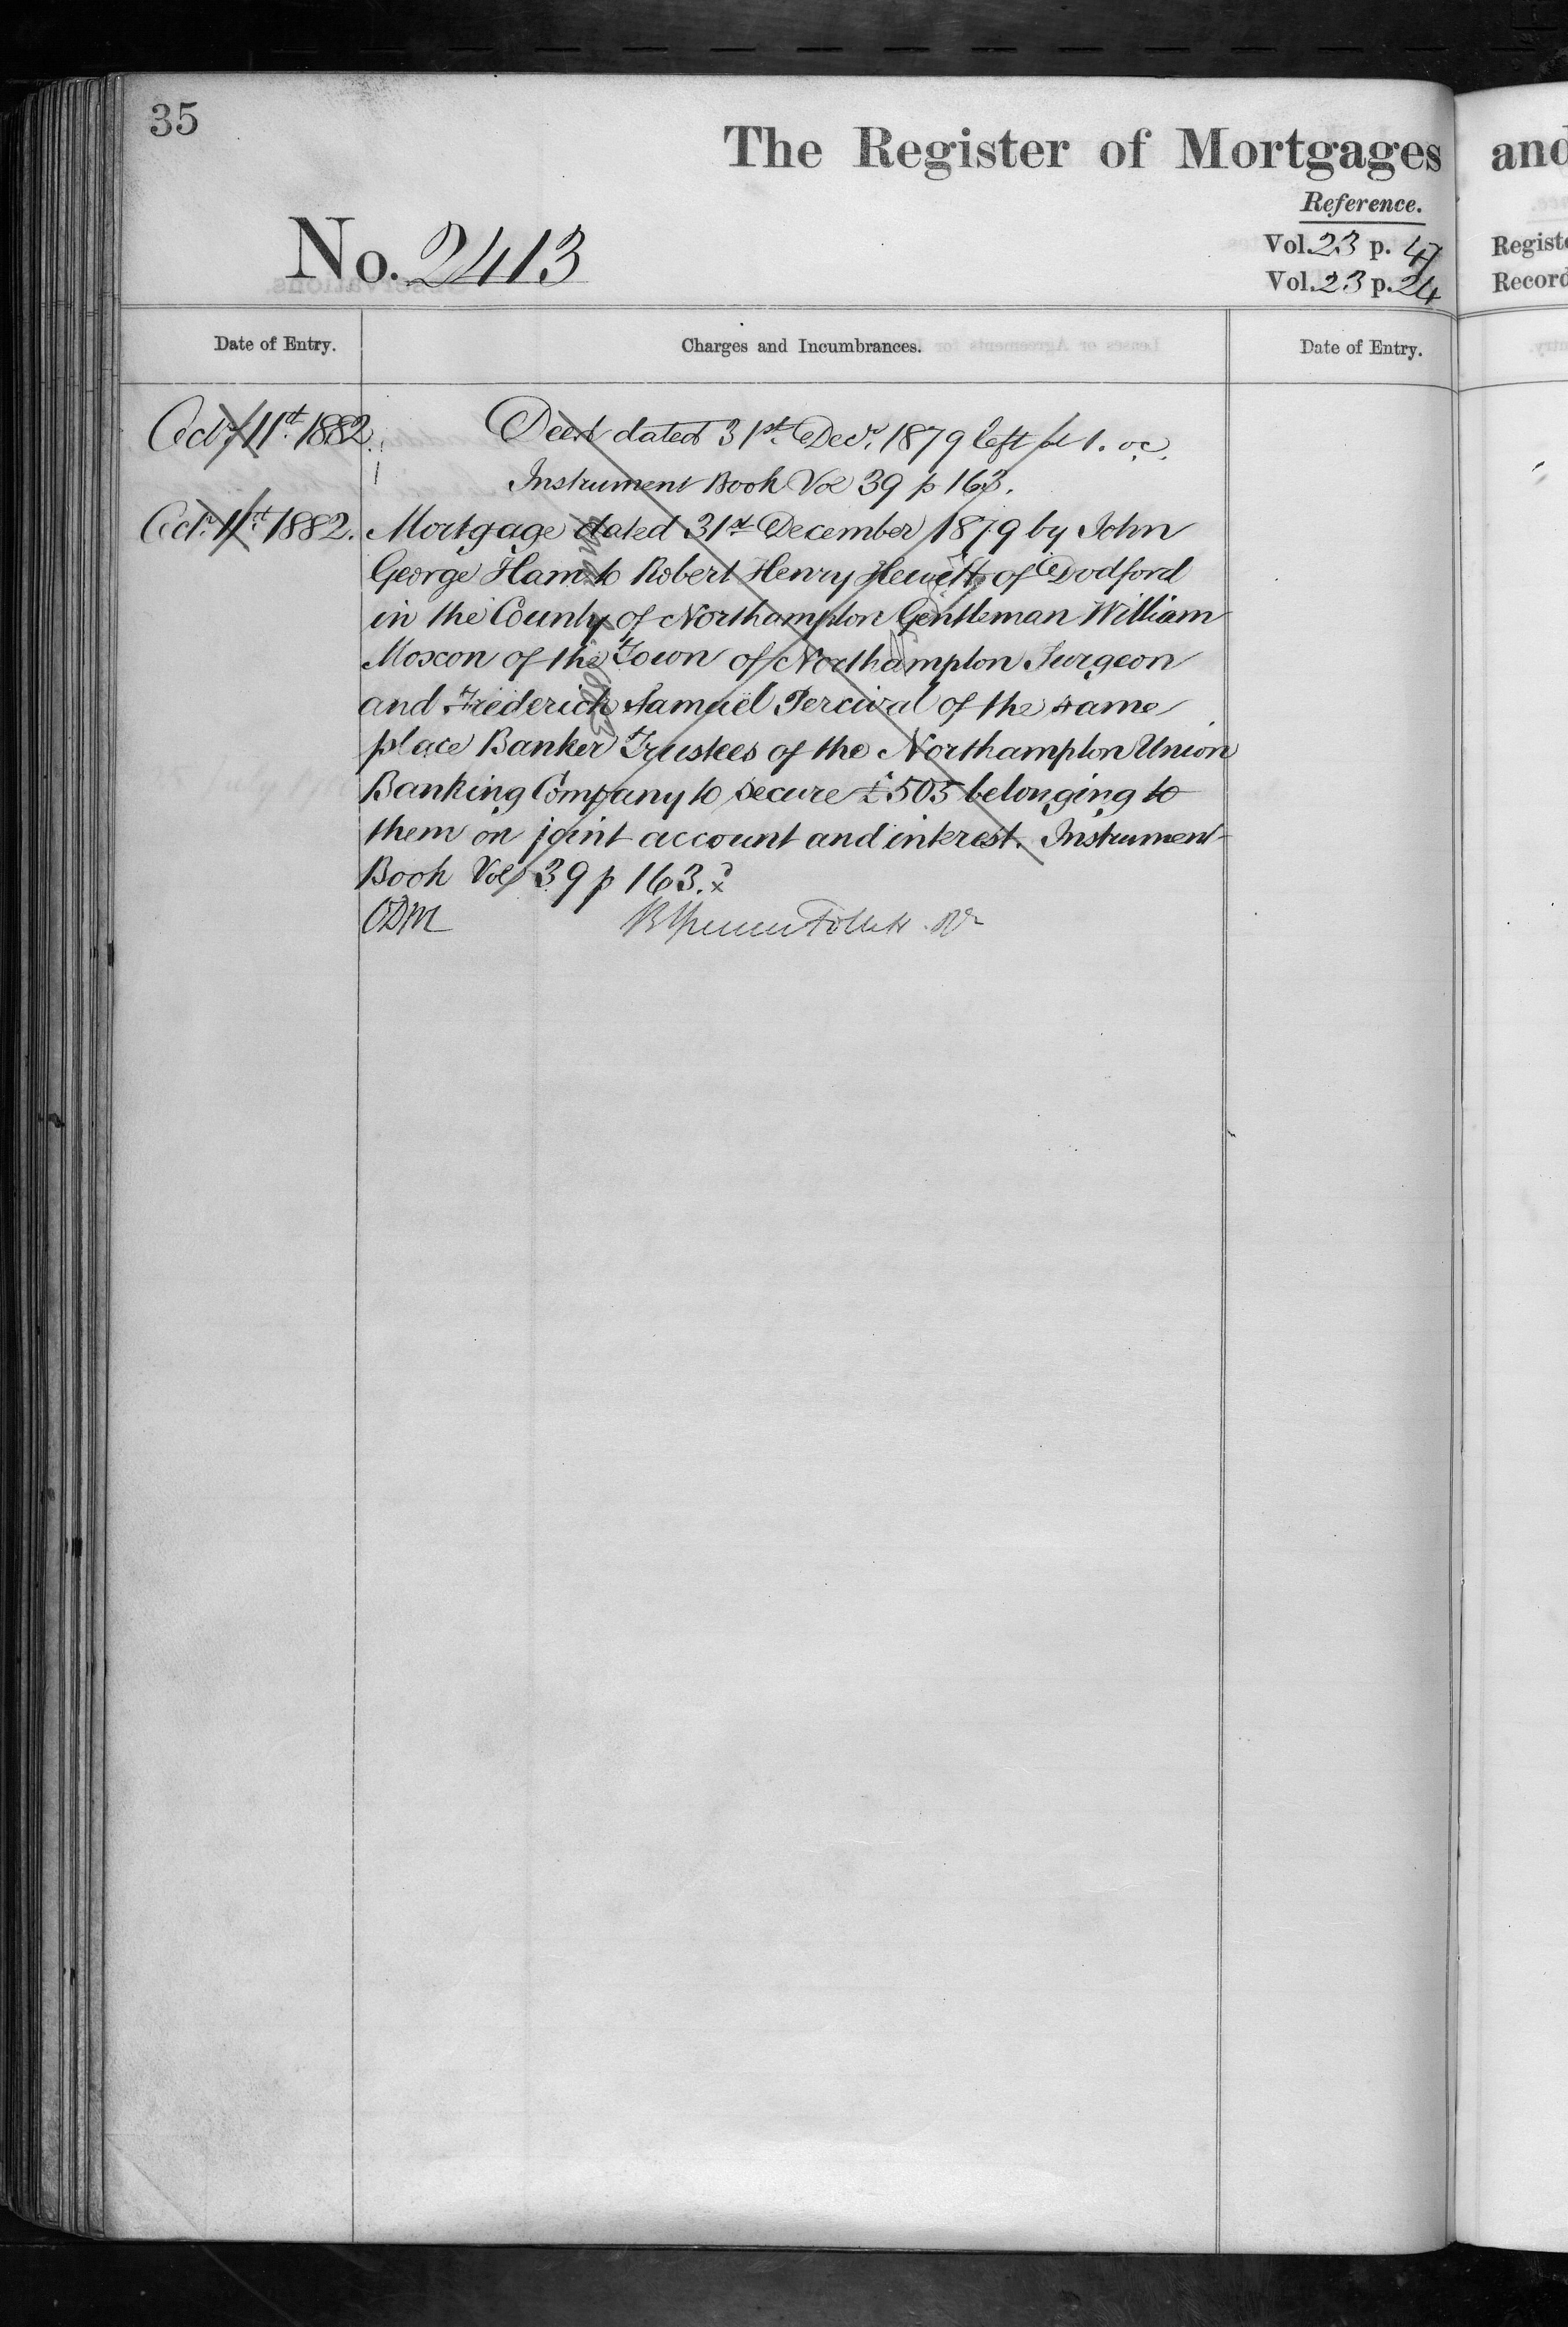 35
The Register of Mortgages and
Reference.
No. 2413
Vol. 23 p. 47
Vol. 23 p. 24
Regist
Record
Date of Entry.
Charges and Incumbrances.
Date of Entry.
Octr 11th 1882.
Deed dated 31st Decr. 1879 left at 1. o.c.
Instrument Book Vol 39 p 163.
Octr. 11th 1882.
Mortgage dated 31st December 1879 by John
George Ham to Robert Henry Hewitt of Dodford
in the County of Northampton Gentleman William
Moxon of the Town of Northampton Surgeon
and Frederick Samuel Percival of the same
place Banker Trustees of the Northampton Union
Banking Company to secure £505 belonging to
them on joint account and interest. Instrument
Book Vol 39 p 163.
ODM